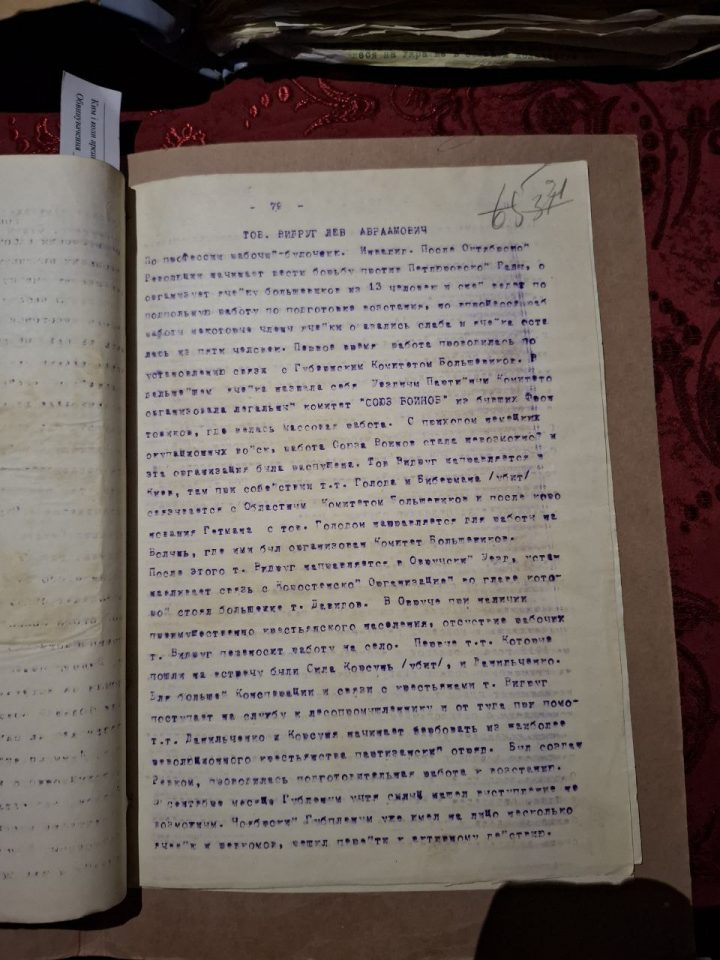 ебя на Укра не в
Ким і коли
Обвинувачення
- 79 -
65 371
ТОВ. ВИРГУГ ЛЕВ АВРААМОВИЧ
По профессии рабочи"-булочник. Инвалид. После Октябрско"
Революции начинает вести борьбу против Петлюровско" Рады, о
организует яче"ку большевиков из 13 человек и ведет по
подпольную работу по подготовке восстания, но впроцессе раб
работы некоторые члены яче"ки оказались слабы и яче"ка оста
лась из пяти человек. Первое время работа проводилась по
установлению связи с Губернским Комитетом Большевиков. В
дальне"шем яче"ка назвала себя Уездным Парти"ным Комитето
организовала легальны" комитет "СОЮЗ ВОИНОВ" из бывших Фрон
товиков, где велась массовая работа. С приходом немецких
окупационных во"ск, работа Союза Воинов стала невозможно" и
эта организация была распущена. Тов Виргуг направляется в
Киев, там при соде"ствии т.т. Голода и Бибермана /убит/
связывается с Областным Комитетом Большевиков и после коро
нования Гетмана с тов. Голодом направляется для работы на
Волынь, где ими был организован Комитет Большевиков.
После этого т. Виргуг направляется в Овручски" Уезд, устан
навливает связь с Коростенско" Организацие" во главе кото-
ро" стоял большевик т. Давидов. В Овруче при наличии
преимущественно крестьянского населения, отсуствие рабочих
т. Виргуг переносит работу на село. Первые т.т. Которые
пошли на встречу были Сила Ковсунь /убит/, и Данильченко.
Для больше" Конспирации и связи с крестьянами т. Виргуг
поступает на службу к лесопромышленнику и от туга при помо-
т.т. Данильченко и Ковсуня начинает вербовать из наиболее
революционного крестьянства партизански" отряд. Был создан
Ревком, проводилась подготовительная работа к восстанию.
В сентябре месяце Губпленум учтя силы нашел выступление не
возможным. Ноябрски" Губпленум уже имел на лицо несколько
ячеек и ревкомов, решил пере"ти к активному де"ствию.